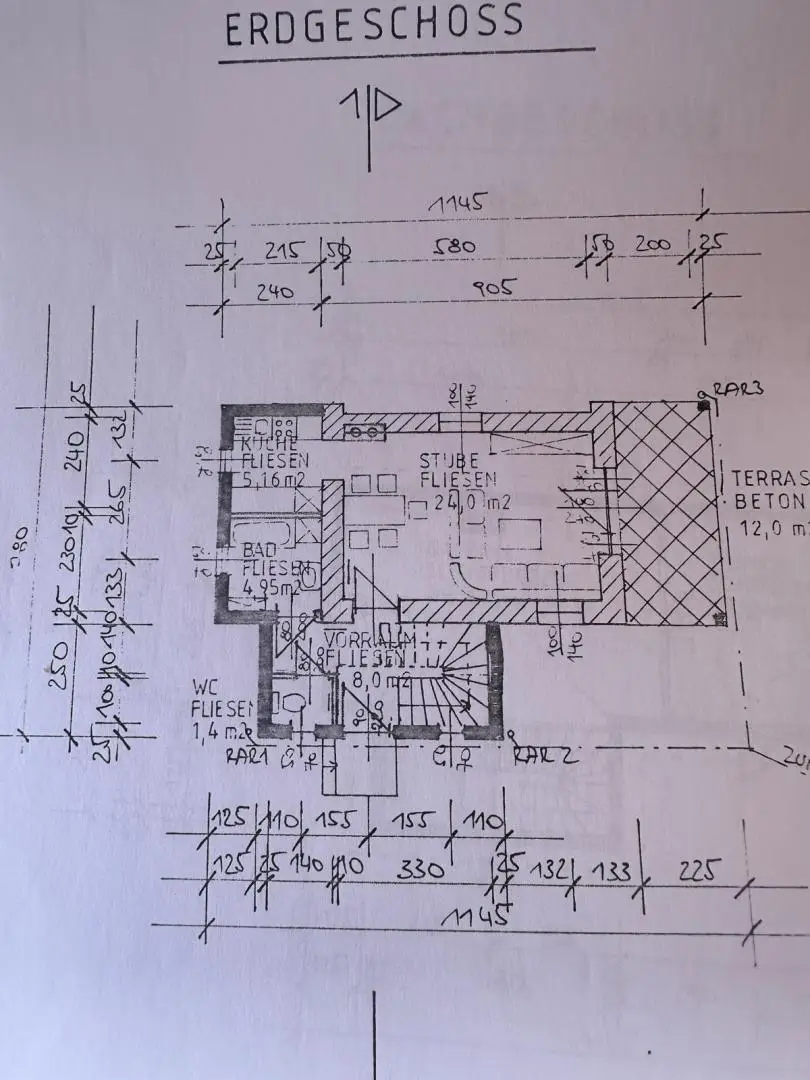 ERDGESCHOSS
1
1145
25 215 50 580 50 200 25
240 905
RAR3
KÜCHE
FLIESEN
5,16 m2
STUBE
FLIESEN
24,0 m2
TERRAS
BETON
12,0 m
BAD
FLIESEN
4,95 m2
VORRAUM
FLIESEN
8,0 m2
WC
FLIESEN
1,4 m2
RAR1
RAR2
180
140
100
140
25
240
10
230
25
250
132
265
133
140
10
100
25
125 110 155 155 110
125 25 140 10 330 25 132 133 225
1145